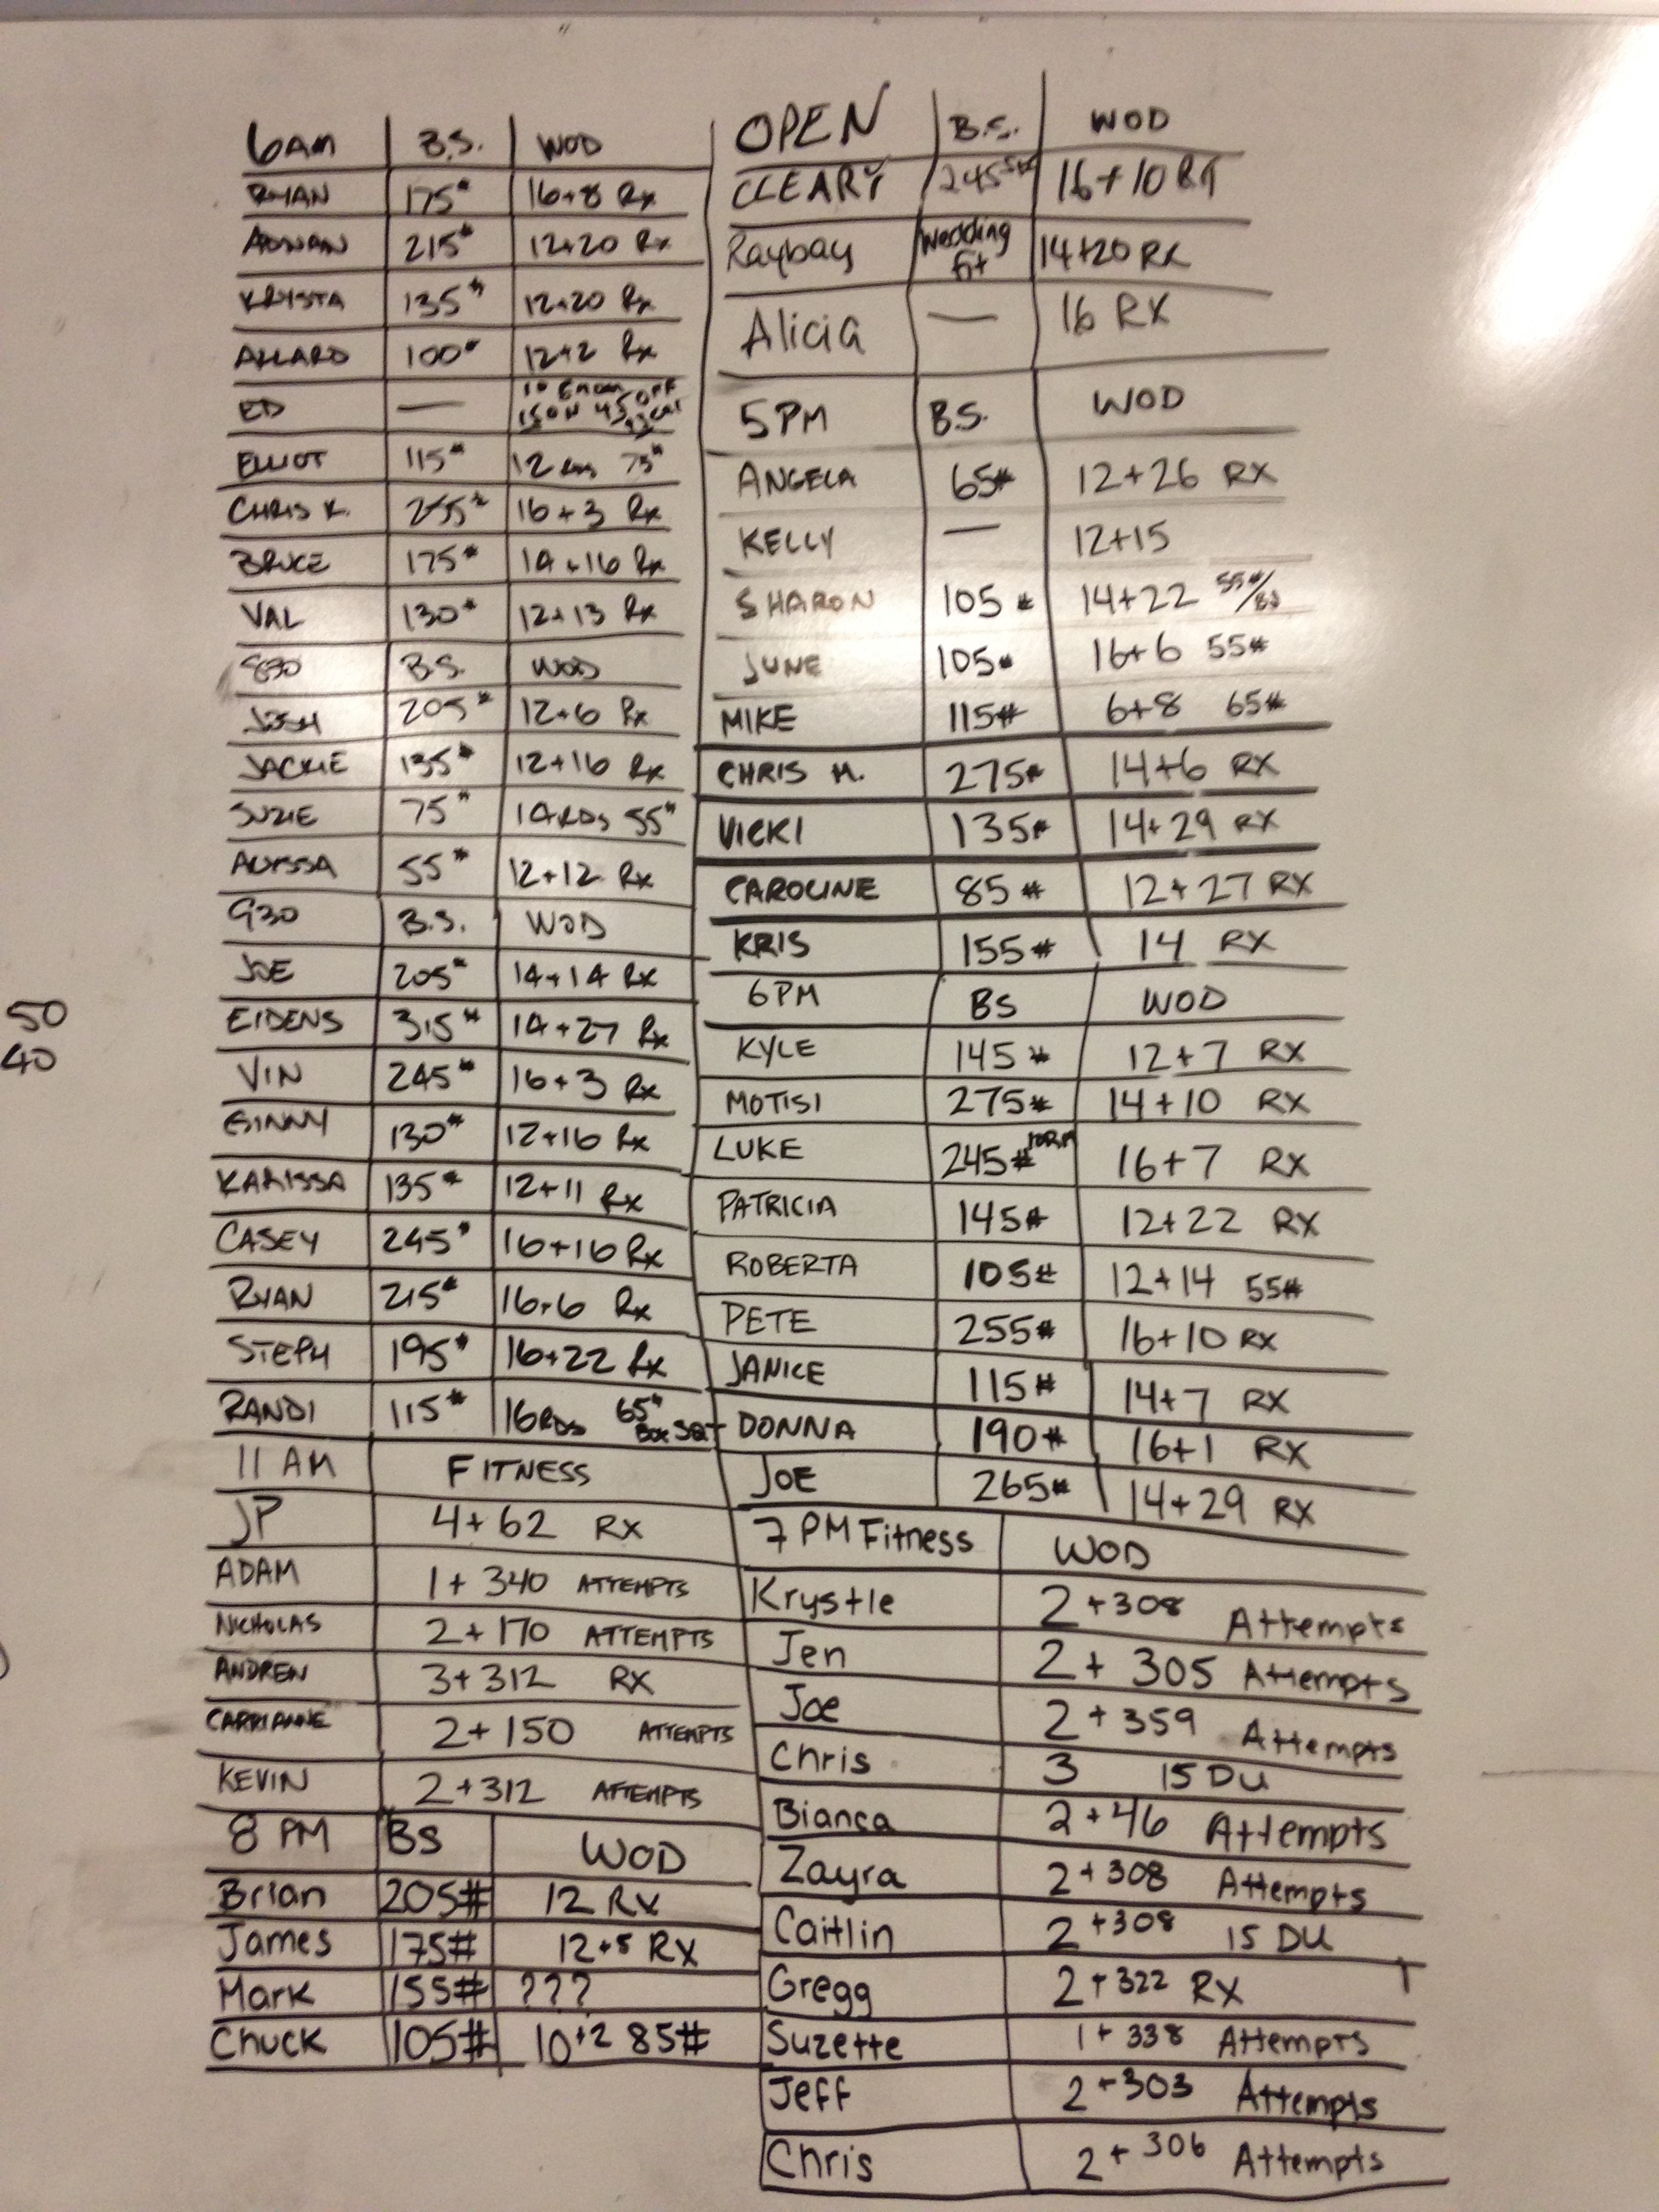 6AM B.S. WOD
RYAN 175# 16+8 Rx
ADNAN 215# 12+20 Rx
KRYSTA 135# 12+20 Rx
ALLARD 100# 12+2 Rx
ED — OFF
ELLIOT 115# 12 75#
CHRIS K. 255# 16+3 Rx
BRUCE 175# 14+16 Rx
VAL 130# 12+13 Rx
830 B.S. WOD
JOSH 205# 12+6 Rx
JACKIE 135# 12+16 Rx
SUZIE 75# 14 RDS 55#
ALYSSA 55# 12+12 Rx
930 B.S. WOD
JOE 205# 14+14 Rx
EIDENS 315# 14+27 Rx
VIN 245# 16+3 Rx
GINNY 130# 12+16 Rx
KARISSA 135# 12+11 Rx
CASEY 245# 16+16 Rx
RYAN 215# 16+6 Rx
STEPH 195# 16+22 Rx
RANDI 115# 16 RDS 65#
11 AM FITNESS
JP 4+62 RX
ADAM 1+340 ATTEMPTS
NICHOLAS 2+170 ATTEMPTS
ANDREW 3+312 RX
CARRIANNE 2+150 ATTEMPTS
KEVIN 2+312 ATTEMPTS
8 PM BS WOD
Brian 205# 12 RX
James 175# 12+8 RX
Mark 155# ???
Chuck 105# 10+2 85#
OPEN B.S. WOD
CLEARY 245 16+10
Raybay Wedding Fit 14+20 RX
Alicia — 16 RX
5PM B.S. WOD
ANGELA 65# 12+26 RX
KELLY — 12+15
SHARON 105# 14+22 55#/
JUNE 105# 16+6 55#
MIKE 115# 6+8 65#
CHRIS M. 275# 14+6 RX
VICKI 135# 14+29 RX
CAROLINE 85# 12+27 RX
KRIS 155# 14 RX
6PM BS WOD
KYLE 145# 12+7 RX
MOTISI 275# 14+10 RX
LUKE 245# 10RM 16+7 RX
PATRICIA 145# 12+22 RX
ROBERTA 105# 12+14 55#
PETE 255# 16+10 RX
JANICE 115# 14+7 RX
DONNA 190# 16+1 RX
JOE 265# 14+29 RX
7 PM Fitness WOD
Krystle 2+308 Attempts
Jen 2+305 Attempts
Joe 2+359 Attempts
Chris 3 15 DU
Bianca 2+46 Attempts
Zayra 2+308 Attempts
Caitlin 2+308 15 DU
Gregg 2+322 RX
Suzette 1+338 Attempts
Jeff 2+303 Attempts
Chris 2+306 Attempts
50
40